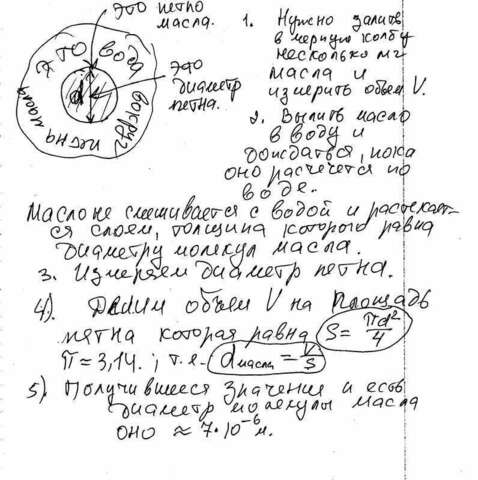 это пятно
масла.
это вода вокруг пятна масла
d
это
диаметр
пятна.
1. Нужно залить
в мерную колбу
несколько мг
масла и
измерить объем V.
2. Вылить масло
в воду и
дождаться, пока
оно растечется по
воде.
Масло не смешивается с водой и растекает-
ся слоем, толщина которого равна
диаметру молекул масла.
3. Измеряем диаметр пятна.
4). Делим объем V на площадь
пятна которая равна S = πd²/4
π ≈ 3,14. ; т.е. d масла = V/S
5). Получившееся значение и есть
диаметр молекулы масла
оно ≈ 7·10⁻⁶ м.